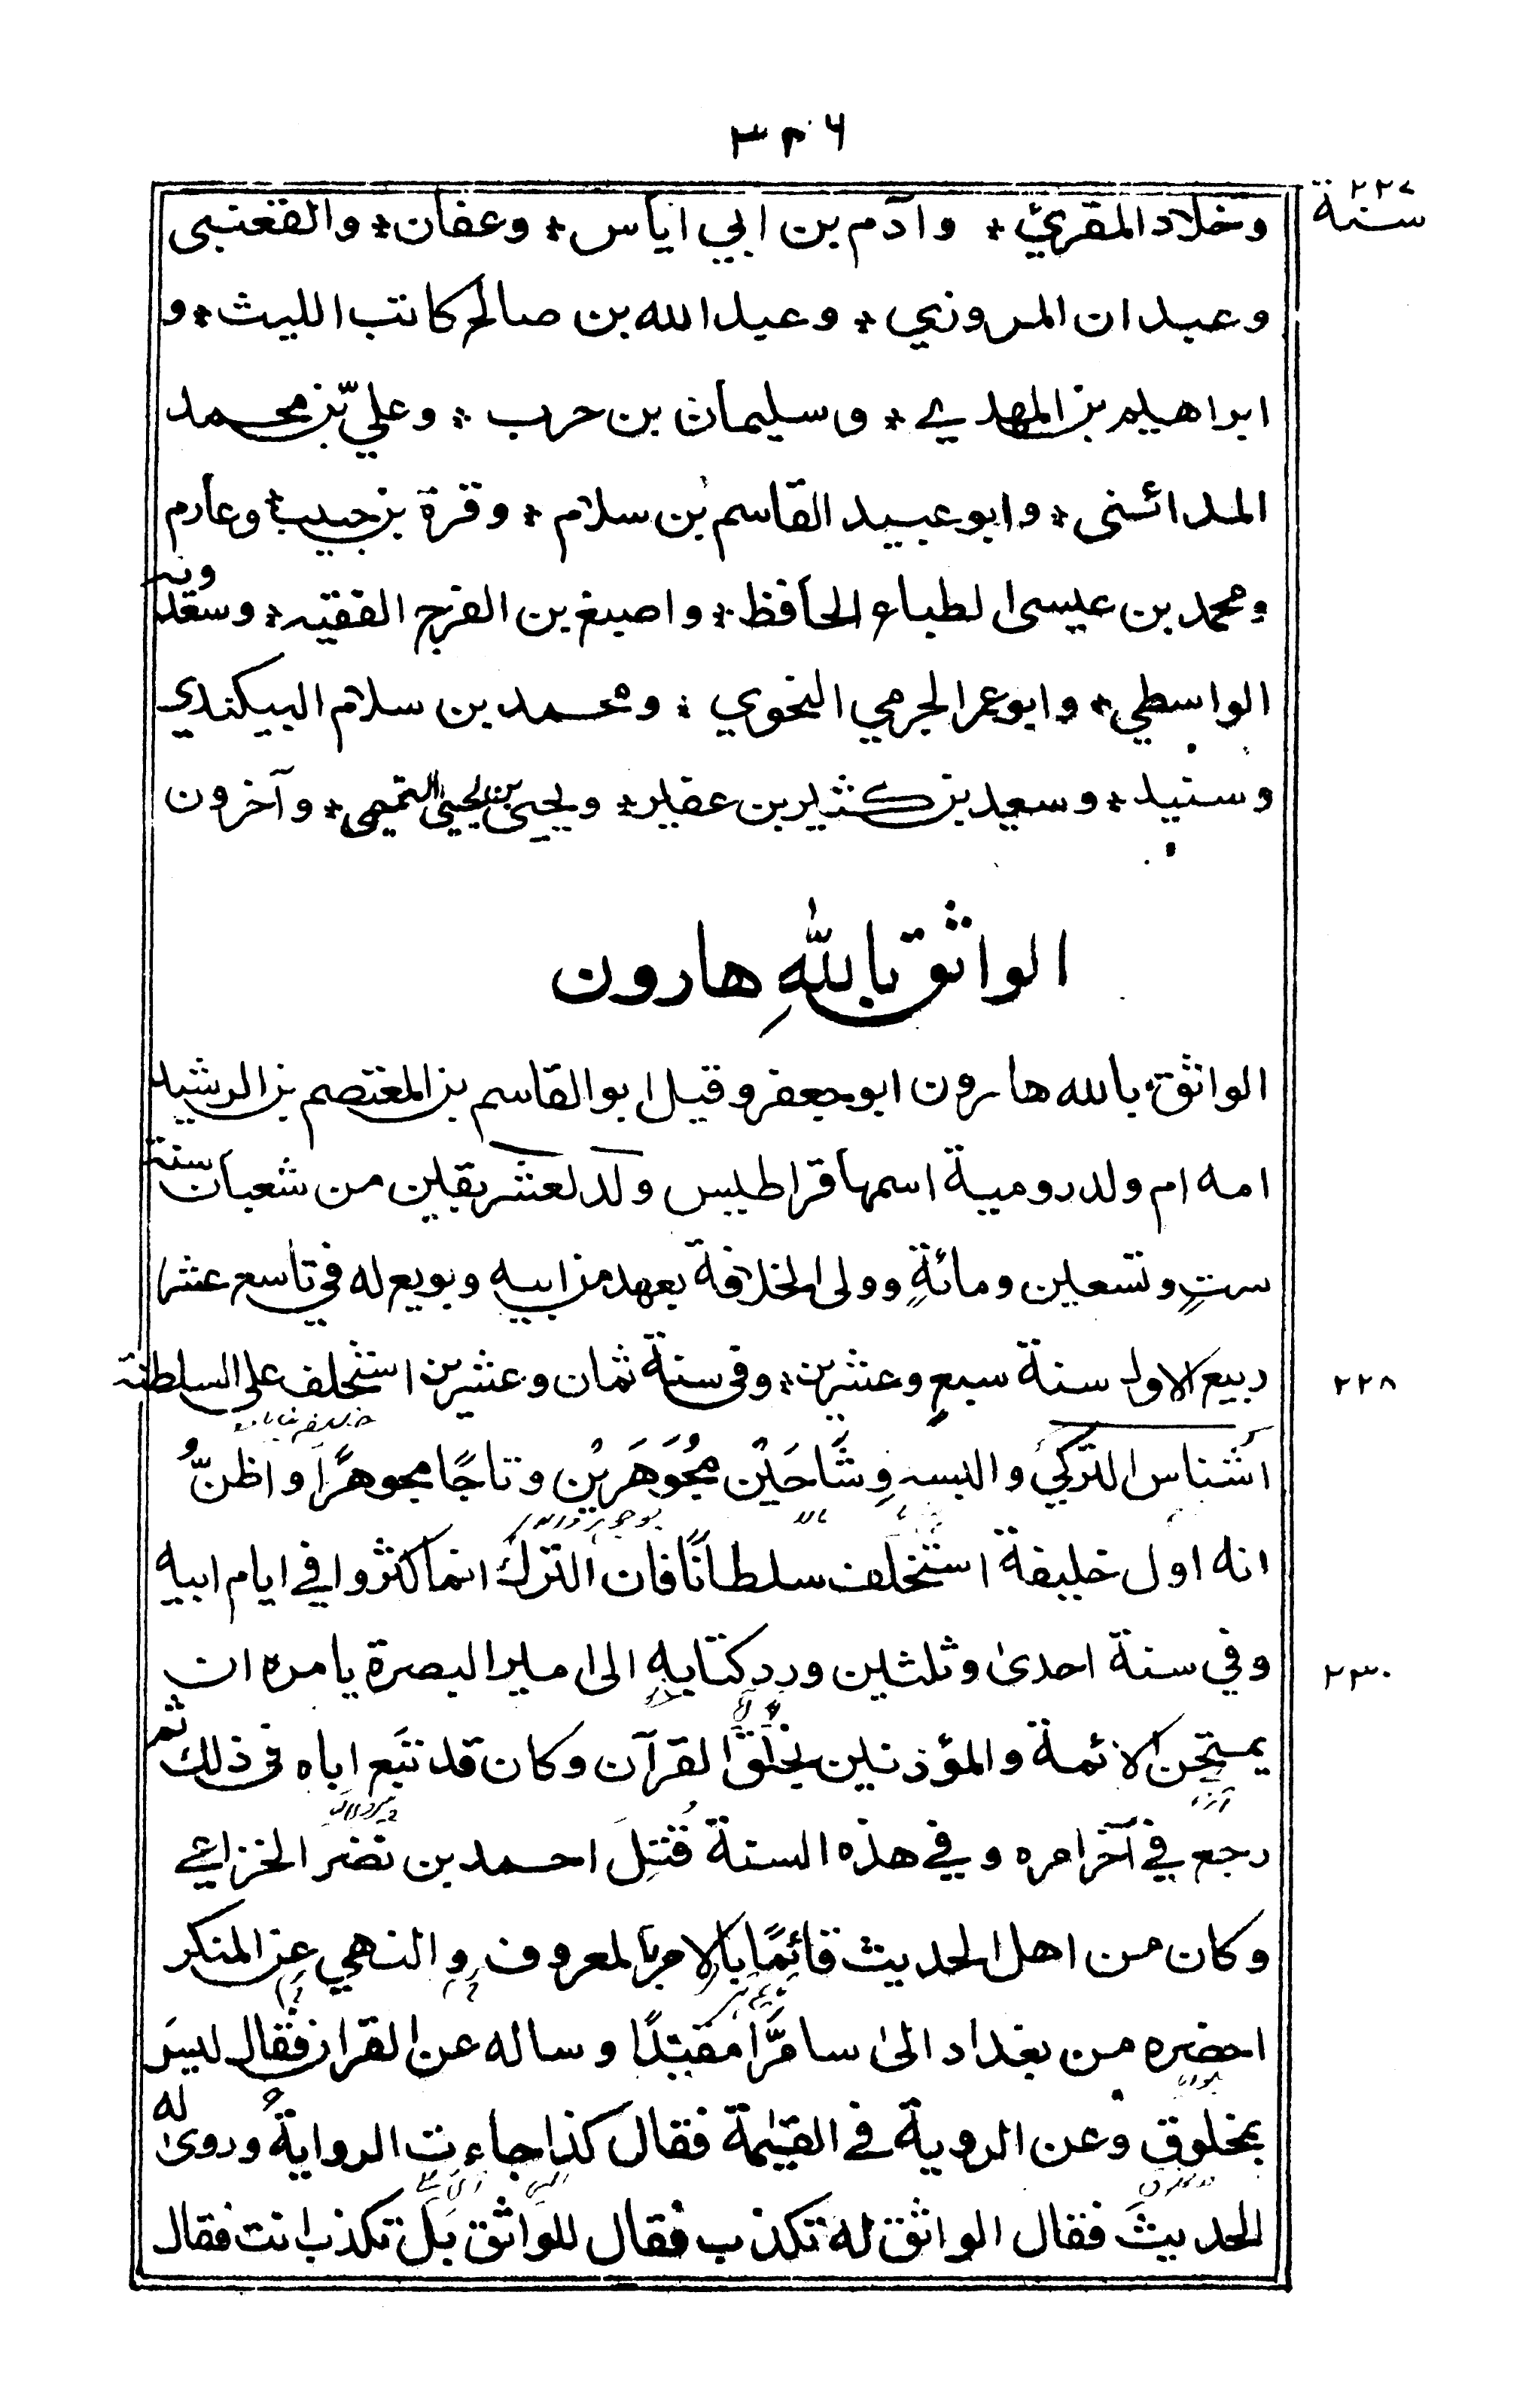 ٣٣٦
سنة ٢٢٧
وخلاد المقريّ * وآدم بن ابي اياس * وعفان * والقعنبى
وعبدان المروزي * وعبد الله بن صالح كاتب الليث * و
ابراهيم بن المهدي * وسليمان بن حرب * وعليّ بن محمد
المدائنى * وابو عبيد القاسم بن سلام * وقرة بن حبيب * وعارم
ومحمد بن عيسى الطباع الحافظ * واصبغ بن الفرج الفقيه * وسعدويه
الواسطي * وابو عمر الجرمي النحوي * ومحمد بن سلام البيكندي
وسنيد * وسعيد بن كثير بن عفير * ويحيى بن يحيى التميمي * وآخرون
الواثق باللّٰهِ هارون
الواثق بالله هارون ابو جعفر وقيل ابو القاسم بن المعتصم بن الرشيد
امه ام ولد رومية اسمها قراطيس ولد لعشر بقين من شعبان سنة
ستٍ وتسعين ومائةٍ وولى الخلافة بعهد من ابيه وبويع له في تاسع عشر
ربيع الاول سنة سبعٍ وعشرين * وفى سنة ثمان وعشرين استخلف على السلطنة
٢٢٨
اَشناس التركيَ والبسه وِشَاحَيْن مُجَوْهَرَيْن وتاجًا مجوهرًا واظنّ
انه اول خليفة استخلف سلطانًا فان الترك انما كثروا في ايام ابيه
وفي سنة احدىٰ وثلثين ورد كتابه الى امير البصرة يامره ان
٢٣٠
يمتحن الائمة والمؤذنين بخلق القرآن وكان قد تبَع اباه فى ذلك ثم
رجع في آخر امره وفي هذه السنة قُتِلَ احمد بن نصر الخزاعي
وكان من اهل الحديث قائِمًا بالامر بالمعروف والنهي عن المنكر
احضره من بغداد الىٰ سامرَّا مقيدًا وساله عن القران فقال ليسَ
بمخلوق وعن الروية في القيٰمة فقال كذا جاءت الروايةُ وروىٰ له
الحديثَ فقال الواثق له تكذب فقال للواثق بَل تكذب انت فقال